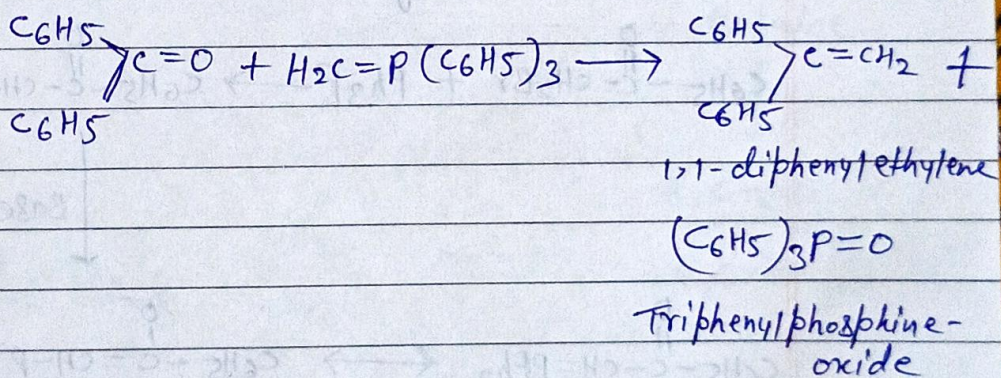 C6H5 C6H5
C=O + H2C=P(C6H5)3 ⟶ C=CH2 +
C6H5 C6H5
1,1-diphenylethylene
(C6H5)3P=O
Triphenylphosphine-
oxide